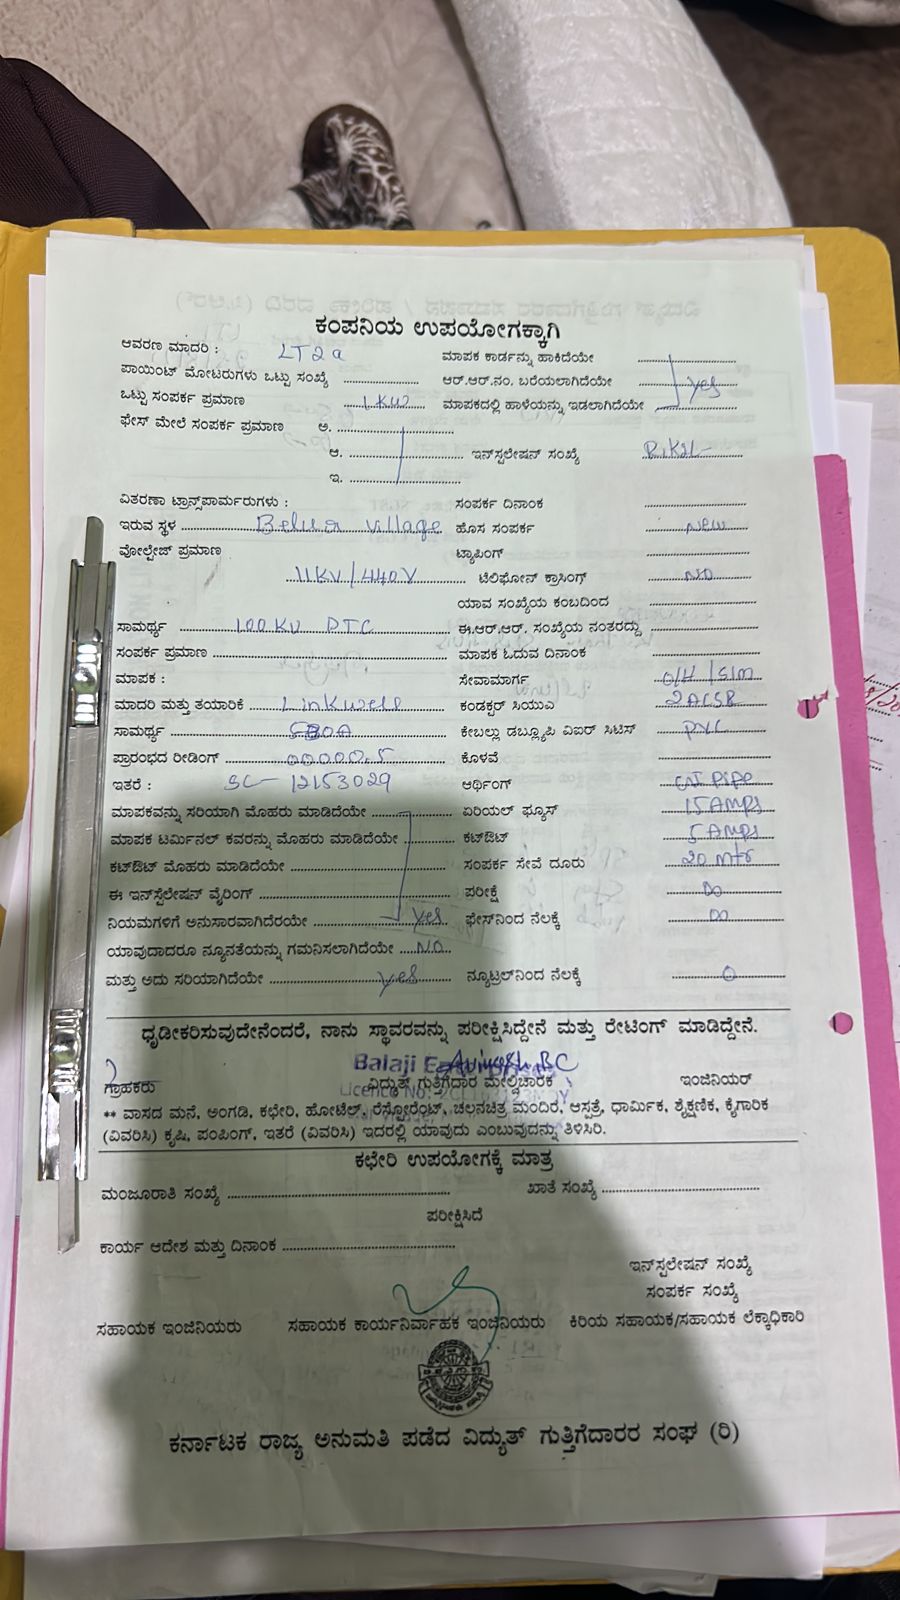 ಕಂಪನಿಯ ಉಪಯೋಗಕ್ಕಾಗಿ
ಆವರಣ ಮಾದರಿ : LT2a ಮಾಪಕ ಕಾರ್ಡನ್ನು ಹಾಕಿದೆಯೇ
ಪಾಯಿಂಟ್ ಮೋಟರುಗಳು ಒಟ್ಟು ಸಂಖ್ಯೆ ಆರ್.ಆರ್.ನಂ. ಬರೆಯಲಾಗಿದೆಯೇ yes
ಒಟ್ಟು ಸಂಪರ್ಕ ಪ್ರಮಾಣ 1 KW ಮಾಪಕದಲ್ಲಿ ಹಾಳೆಯನ್ನು ಇಡಲಾಗಿದೆಯೇ
ಫೇಸ್ ಮೇಲೆ ಸಂಪರ್ಕ ಪ್ರಮಾಣ ಅ.
ಆ. ಇನ್‌ಸ್ಟಲೇಷನ್ ಸಂಖ್ಯೆ
ಇ.
ವಿತರಣಾ ಟ್ರಾನ್ಸ್‌ಪಾರ್ಮರುಗಳು : ಸಂಪರ್ಕ ದಿನಾಂಕ
ಇರುವ ಸ್ಥಳ Belur village ಹೊಸ ಸಂಪರ್ಕ New
ವೋಲ್ಟೇಜ್ ಪ್ರಮಾಣ ಟ್ಯಾಪಿಂಗ್
11KV/440V ಟೆಲಿಫೋನ್ ಕ್ರಾಸಿಂಗ್ NO
ಯಾವ ಸಂಖ್ಯೆಯ ಕಂಬದಿಂದ
ಸಾಮರ್ಥ್ಯ 100 KV DTC ಈ.ಆರ್.ಆರ್. ಸಂಖ್ಯೆಯ ನಂತರದ್ದು
ಸಂಪರ್ಕ ಪ್ರಮಾಣ ಮಾಪಕ ಓದುವ ದಿನಾಂಕ
ಮಾಪಕ : ಸೇವಾಮಾರ್ಗ O/H
ಮಾದರಿ ಮತ್ತು ತಯಾರಿಕೆ Linkwell ಕಂಡಕ್ಟರ್ ಸಿಯುಎ
ಸಾಮರ್ಥ್ಯ ಕೇಬಲ್ಲು ಡಬ್ಲ್ಯೂಪಿ ವಿಐರ್ ಸಿಟಿಸ್ PVC
ಪ್ರಾರಂಭದ ರೀಡಿಂಗ್ 00000.5 ಕೊಳವೆ
ಇತರೆ : SL- 12153029 ಆರ್ಥಿಂಗ್ Pipe
ಮಾಪಕವನ್ನು ಸರಿಯಾಗಿ ಮೊಹರು ಮಾಡಿದೆಯೇ ಏರಿಯಲ್ ಫ್ಯೂಸ್ 15 Amps
ಮಾಪಕ ಟರ್ಮಿನಲ್ ಕವರನ್ನು ಮೊಹರು ಮಾಡಿದೆಯೇ ಕಟ್ಔಟ್ 5 Amps
ಕಟ್ಔಟ್ ಮೊಹರು ಮಾಡಿದೆಯೇ ಸಂಪರ್ಕ ಸೇವೆ ದೂರು 20 mtr
ಈ ಇನ್‌ಸ್ಟೆಲೇಷನ್ ವೈರಿಂಗ್ ಪರೀಕ್ಷೆ ∞
ನಿಯಮಗಳಿಗೆ ಅನುಸಾರವಾಗಿದೆರಯೇ yes ಫೇಸ್‌ನಿಂದ ನೆಲಕ್ಕೆ ∞
ಯಾವುದಾದರೂ ನ್ಯೂನತೆಯನ್ನು ಗಮನಿಸಲಾಗಿದೆಯೇ NO
ಮತ್ತು ಅದು ಸರಿಯಾಗಿದೆಯೇ yes ನ್ಯೂಟ್ರಲ್‌ನಿಂದ ನೆಲಕ್ಕೆ 0
ಧೃಡೀಕರಿಸುವುದೇನೆಂದರೆ, ನಾನು ಸ್ಥಾವರವನ್ನು ಪರೀಕ್ಷಿಸಿದ್ದೇನೆ ಮತ್ತು ರೇಟಿಂಗ್ ಮಾಡಿದ್ದೇನೆ.
Balaji
ಗ್ರಾಹಕರು ವಿದ್ಯುತ್ ಗುತ್ತಿಗೆದಾರ ಮೇಲ್ವಿಚಾರಕ ಇಂಜಿನಿಯರ್
Licence No:
** ವಾಸದ ಮನೆ, ಅಂಗಡಿ, ಕಛೇರಿ, ಹೋಟೆಲ್, ರೆಸ್ಟೋರೆಂಟ್, ಚಲನಚಿತ್ರ ಮಂದಿರ, ಆಸ್ಪತ್ರೆ, ಧಾರ್ಮಿಕ, ಶೈಕ್ಷಣಿಕ, ಕೈಗಾರಿಕ
(ವಿವರಿಸಿ) ಕೃಷಿ, ಪಂಪಿಂಗ್, ಇತರೆ (ವಿವರಿಸಿ) ಇದರಲ್ಲಿ ಯಾವುದು ಎಂಬುವುದನ್ನು ತಿಳಿಸಿರಿ.
ಕಛೇರಿ ಉಪಯೋಗಕ್ಕೆ ಮಾತ್ರ
ಮಂಜೂರಾತಿ ಸಂಖ್ಯೆ ಖಾತೆ ಸಂಖ್ಯೆ
ಪರೀಕ್ಷಿಸಿದೆ
ಕಾರ್ಯ ಆದೇಶ ಮತ್ತು ದಿನಾಂಕ
ಇನ್‌ಸ್ಟಲೇಷನ್ ಸಂಖ್ಯೆ
ಸಂಪರ್ಕ ಸಂಖ್ಯೆ
ಸಹಾಯಕ ಇಂಜಿನಿಯರು ಸಹಾಯಕ ಕಾರ್ಯನಿರ್ವಾಹಕ ಇಂಜಿನಿಯರು ಕಿರಿಯ ಸಹಾಯಕ/ಸಹಾಯಕ ಲೆಕ್ಕಾಧಿಕಾರಿ
ಕರ್ನಾಟಕ ರಾಜ್ಯ ಅನುಮತಿ ಪಡೆದ ವಿದ್ಯುತ್ ಗುತ್ತಿಗೆದಾರರ ಸಂಘ (ರಿ)